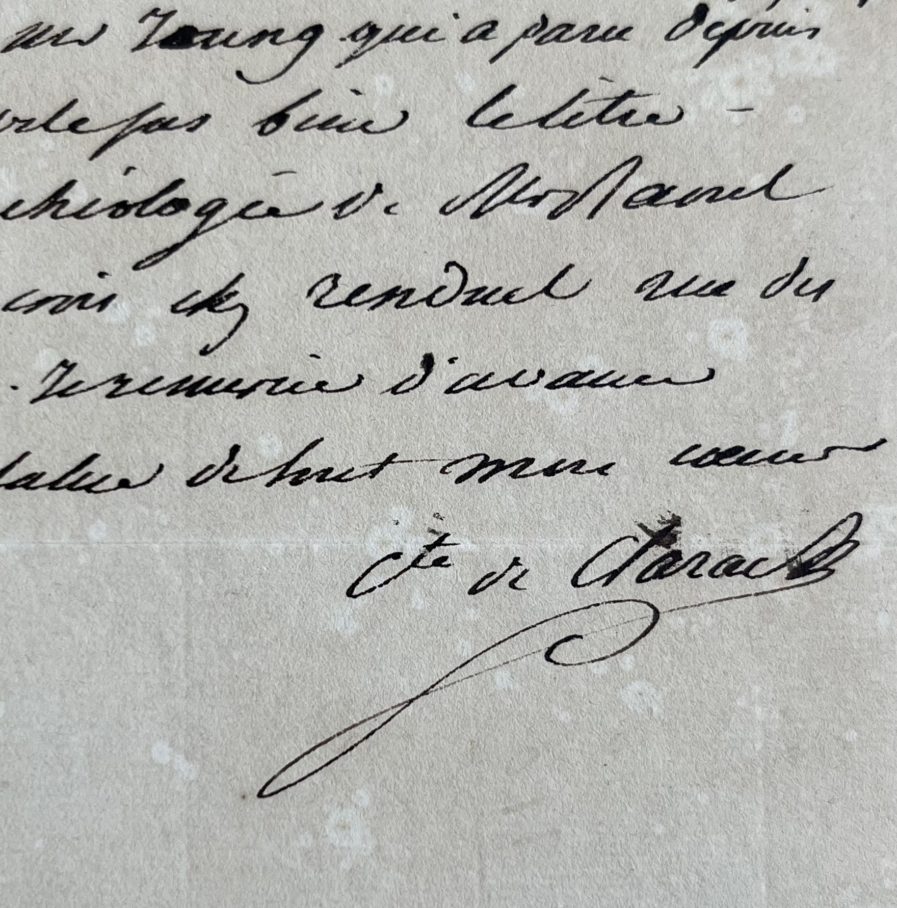 Young qui a paru depuis
pas bien le titre -
chéologie de Mr Raoul
crois chez renduel rue des
. Je remercie d'avance
salue de tout mon cœur
Cte de Clarac